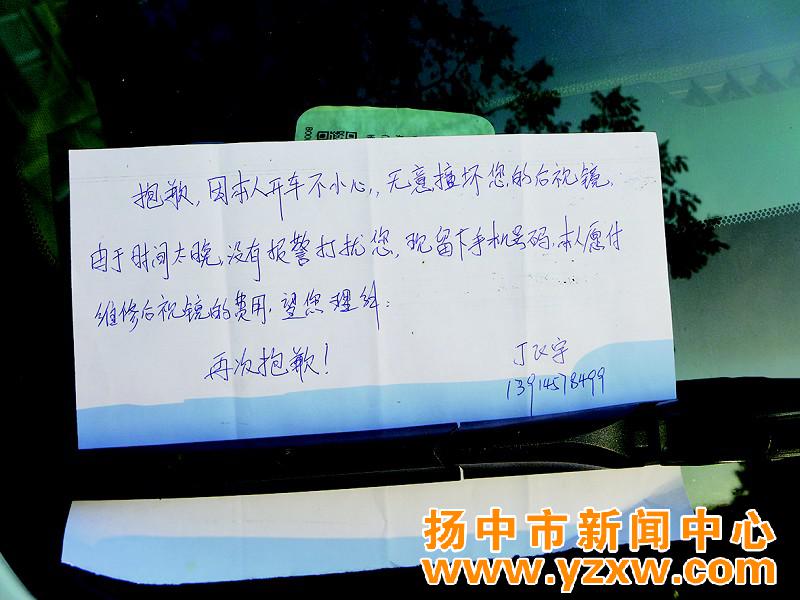 抱歉,因本人开车不小心,无意撞坏您的后视镜,
由于时间太晚,没有报警打扰您,现留下手机号码,本人愿付
维修后视镜的费用,望您理解.
再次抱歉!
丁以宇
13914578499
扬中市新闻中心
www.yzxw.com